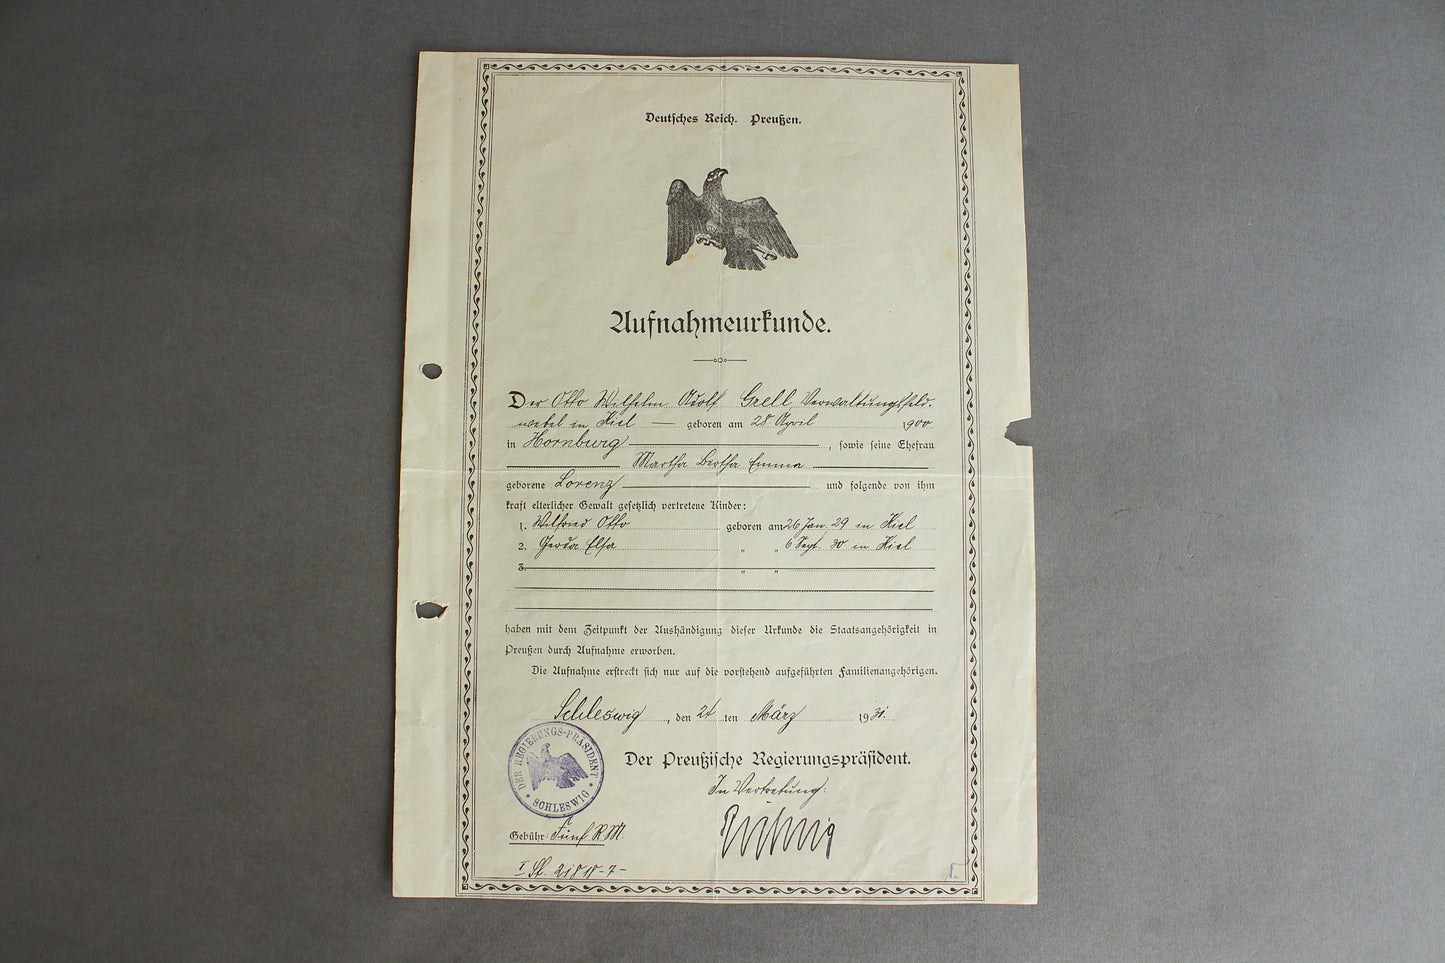 Deutsches Reich. Preußen.
Aufnahmeurkunde.
Der Otto Wilhelm Adolf Grell, Verwaltungsfeld-
webel in Kiel — geboren am 28 April 1900
in Hornburg, sowie seine Ehefrau
Martha Bertha Emma
geborene Lorenz und folgende von ihm
kraft elterlicher Gewalt gesetzlich vertretene Kinder:
1. Wilfried Otto geboren am 26 Jan. 29 in Kiel
2. Gerda Elsa " " 6 Sept. 30 in Kiel
3. " "
haben mit dem Zeitpunkt der Aushändigung dieser Urkunde die Staatsangehörigkeit in
Preußen durch Aufnahme erworben.
Die Aufnahme erstreckt sich nur auf die vorstehend aufgeführten Familienangehörigen.
Schleswig, den 24 ten März 1931.
DER REGIERUNGS-PRÄSIDENT
SCHLESWIG
Der Preußische Regierungspräsident.
In Vertretung:
Gebühr: Fünf R.M.
I St.